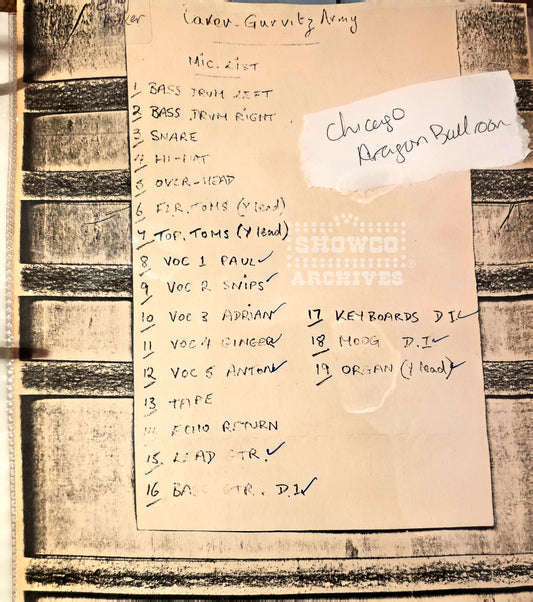 Gurvitz Army
Mic. List
Chicago
Aragon Ballroom
1 BASS DRUM LEFT
2 BASS DRUM RIGHT
3 SNARE
4 HI-HAT
5 OVER-HEAD
6 FLR. TOMS (Y lead)
7 TOP. TOMS (Y lead)
SHOWCO
ARCHIVES
8 VOC 1 PAUL ✓
9 VOC 2 SNIPS ✓
10 VOC 3 ADRIAN ✓
11 VOC 4 GINGER ✓
12 VOC 5 ANTON ✓
13 TAPE
14 ECHO RETURN
15. LEAD GTR. ✓
16 BASS GTR. D.I ✓
17 KEYBOARDS D.I ✓
18 MOOG D.I ✓
19 ORGAN (Y lead) ✓